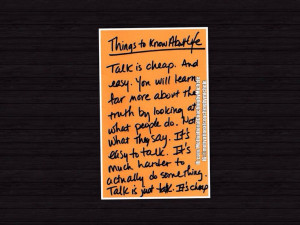 Things to Know About Life
Talk is cheap. And
easy. You will learn
far more about the
truth by looking at
what people do. Not
what they say. It's
easy to talk. It's
much harder to
actually do something.
Talk is just talk. It's cheap